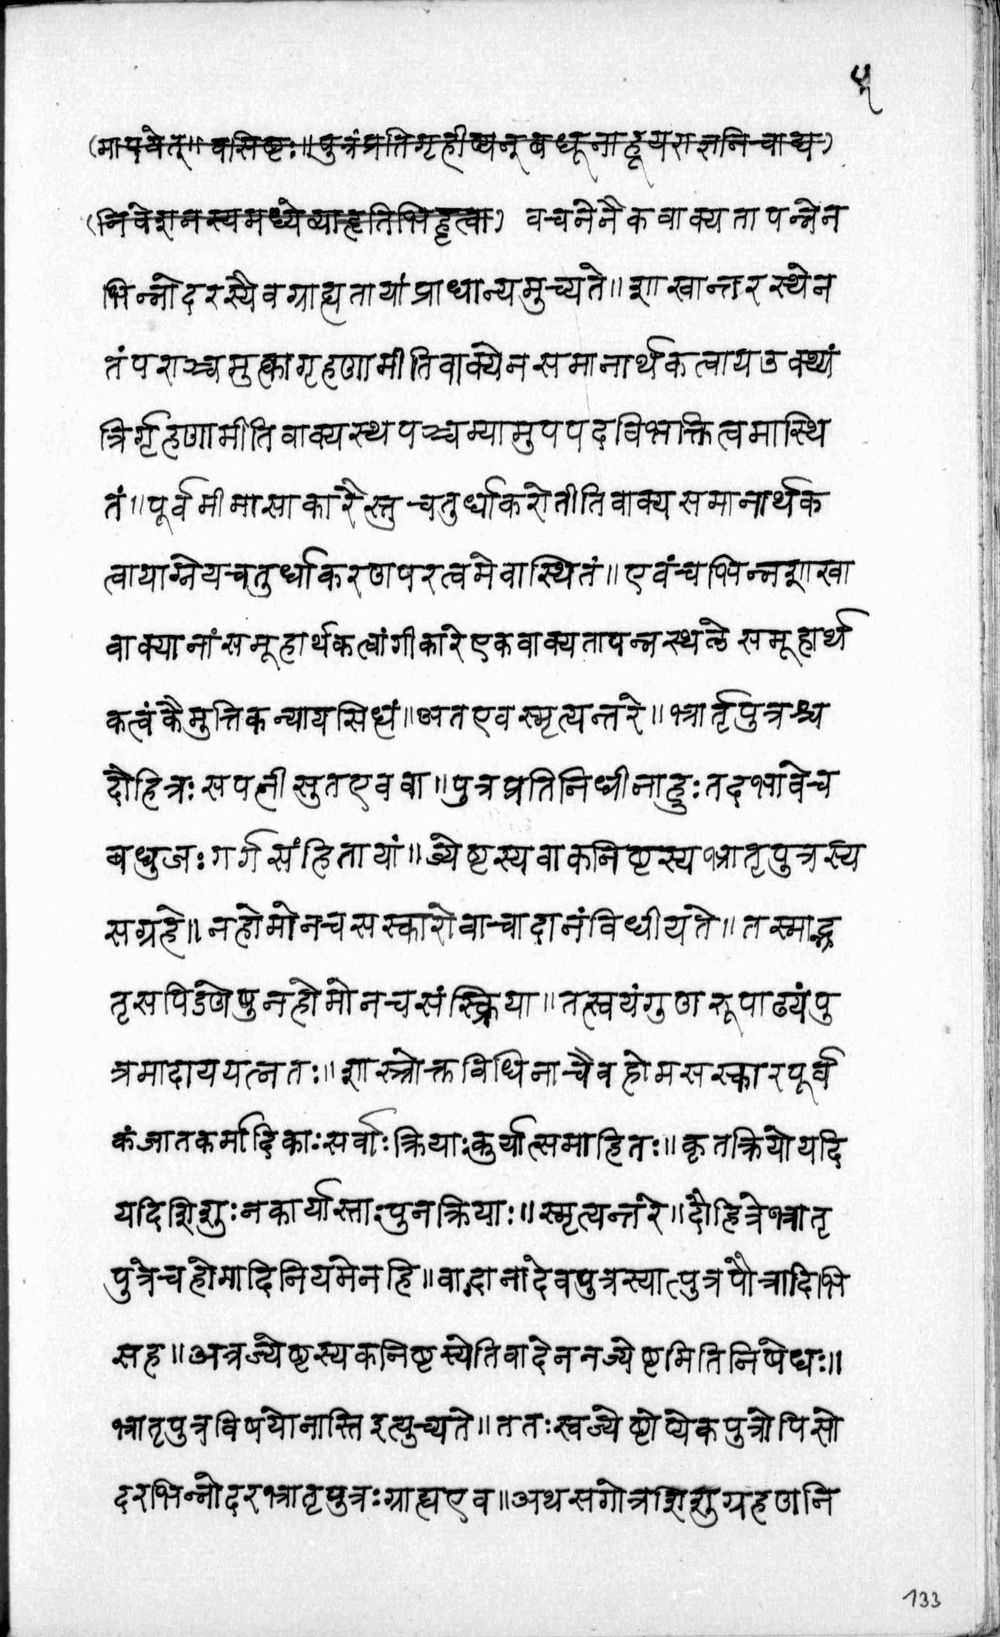 ५
(मापयेत्॥वसिष्टः॥पुत्रंप्रतिगृहीष्यन्बधूनाहूयराज्ञनिवाद्य)
(निवेशनस्यमध्येव्याहृतिभिहृत्वा) वचनेनैकवाक्यतापन्नेन
भिन्नोदरस्यैवग्राह्यतायांप्राधान्यमुच्यते॥शाखान्तरस्थेन
तंपराञ्चमुत्कागृहणामीतिवाक्येनसमानार्थकत्वायउक्थ्यं
त्रिर्गृहणामीतिवाक्यस्थपञ्चम्यामुपपदविभक्तित्वमास्थि
तं॥पूर्वमीमासाकारैस्तुचतुर्धाकरोतीतिवाक्यसमानार्थक
त्वायाग्नेयचतुर्धाकरणपरत्वमेवास्थितं॥एवंचभिन्नशाखा
वाक्यानांसमूहार्थकत्वांगीकारेएकवाक्यतापन्नस्थलेसमूहार्थ
कत्वंकैमुत्तिकन्यायसिधं॥अतएवस्मृत्यन्तरे॥भ्रार्तृपुत्रश्च
दौहित्रःसपत्नीसुतएववा॥पुत्रप्रतिनिधीनाहुःतदभावेच
बधुजःगर्गसंहितायां॥ज्येष्टस्यवाकनिष्टस्यभ्रातृपुत्रस्य
सग्रहे॥नहोमोनचसस्कारोवाचादानंविधीयते॥तस्माद्भ्रा
तृसपिंडेणेषुनहोमोनचसंस्क्रिया॥तत्स्वयंगुणरूपाढ्यंपु
त्रमादाययत्नतः॥शास्त्रोक्तविधिनाचैवहोमसस्कारपूर्व
कंजातकर्मादिकाःसर्वाःक्रियाःकुर्यात्समाहितः॥कृतक्रियोयदि
यदिशिशुःनकार्यास्ताःपुनक्रियाः॥स्मृत्यन्तरे॥दौहित्रेभ्रातृ
पुत्रेचहोमादिनियमेनहि॥वाग्दानादेवपुत्रस्यात्पुत्रपौत्रादिभि
सह॥अत्रज्येष्टस्यकनिष्टस्येतिवादेननज्येष्टमितिनिषेधः॥
भ्रातृपुत्रविषयोनास्तिइत्युच्यते॥ततःस्वज्येष्टोप्येकपुत्रोपिसो
दरभिन्नोदरभ्रातृपुत्रःग्राह्यएव॥अथसगोत्रशिशुग्रहणनि
133